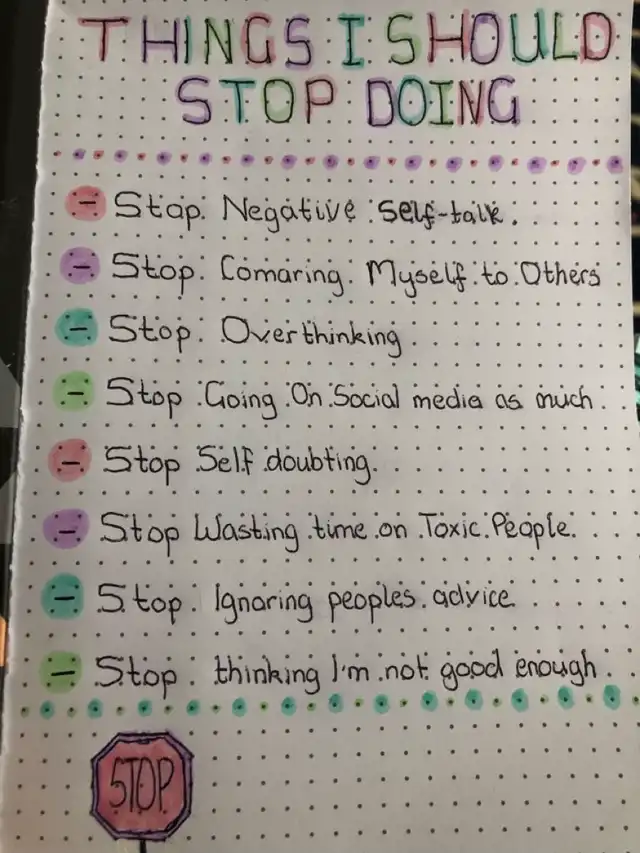 THINGS I SHOULD
STOP DOING
- Stop Negative self-talk.
- Stop Comaring Myself to Others
- Stop Overthinking
- Stop Going On Social media as much
- Stop Self doubting.
- Stop Wasting time on Toxic People.
- Stop Ignoring peoples advice
- Stop thinking I'm not good enough
STOP